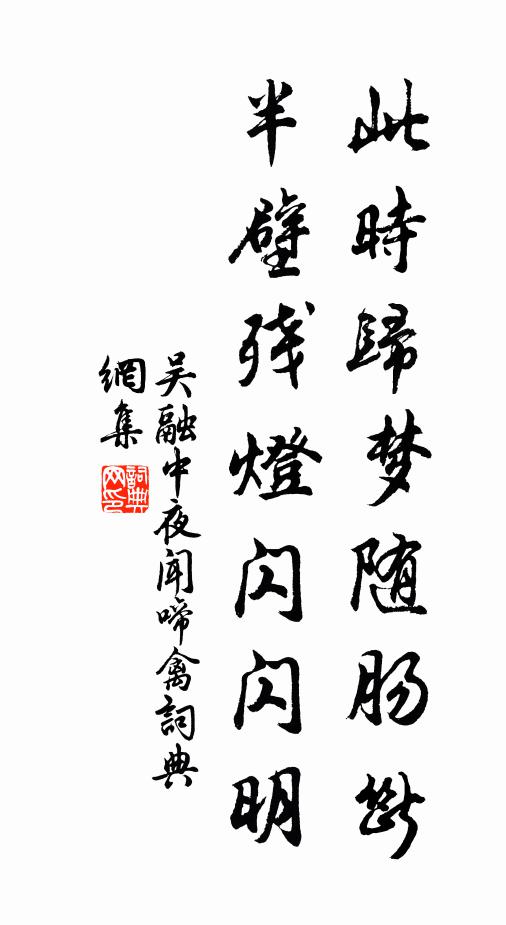 此時歸梦随肠斷
半壁残燈闪闪明
吴融中夜闻啼禽詞典
網集
詞典網印